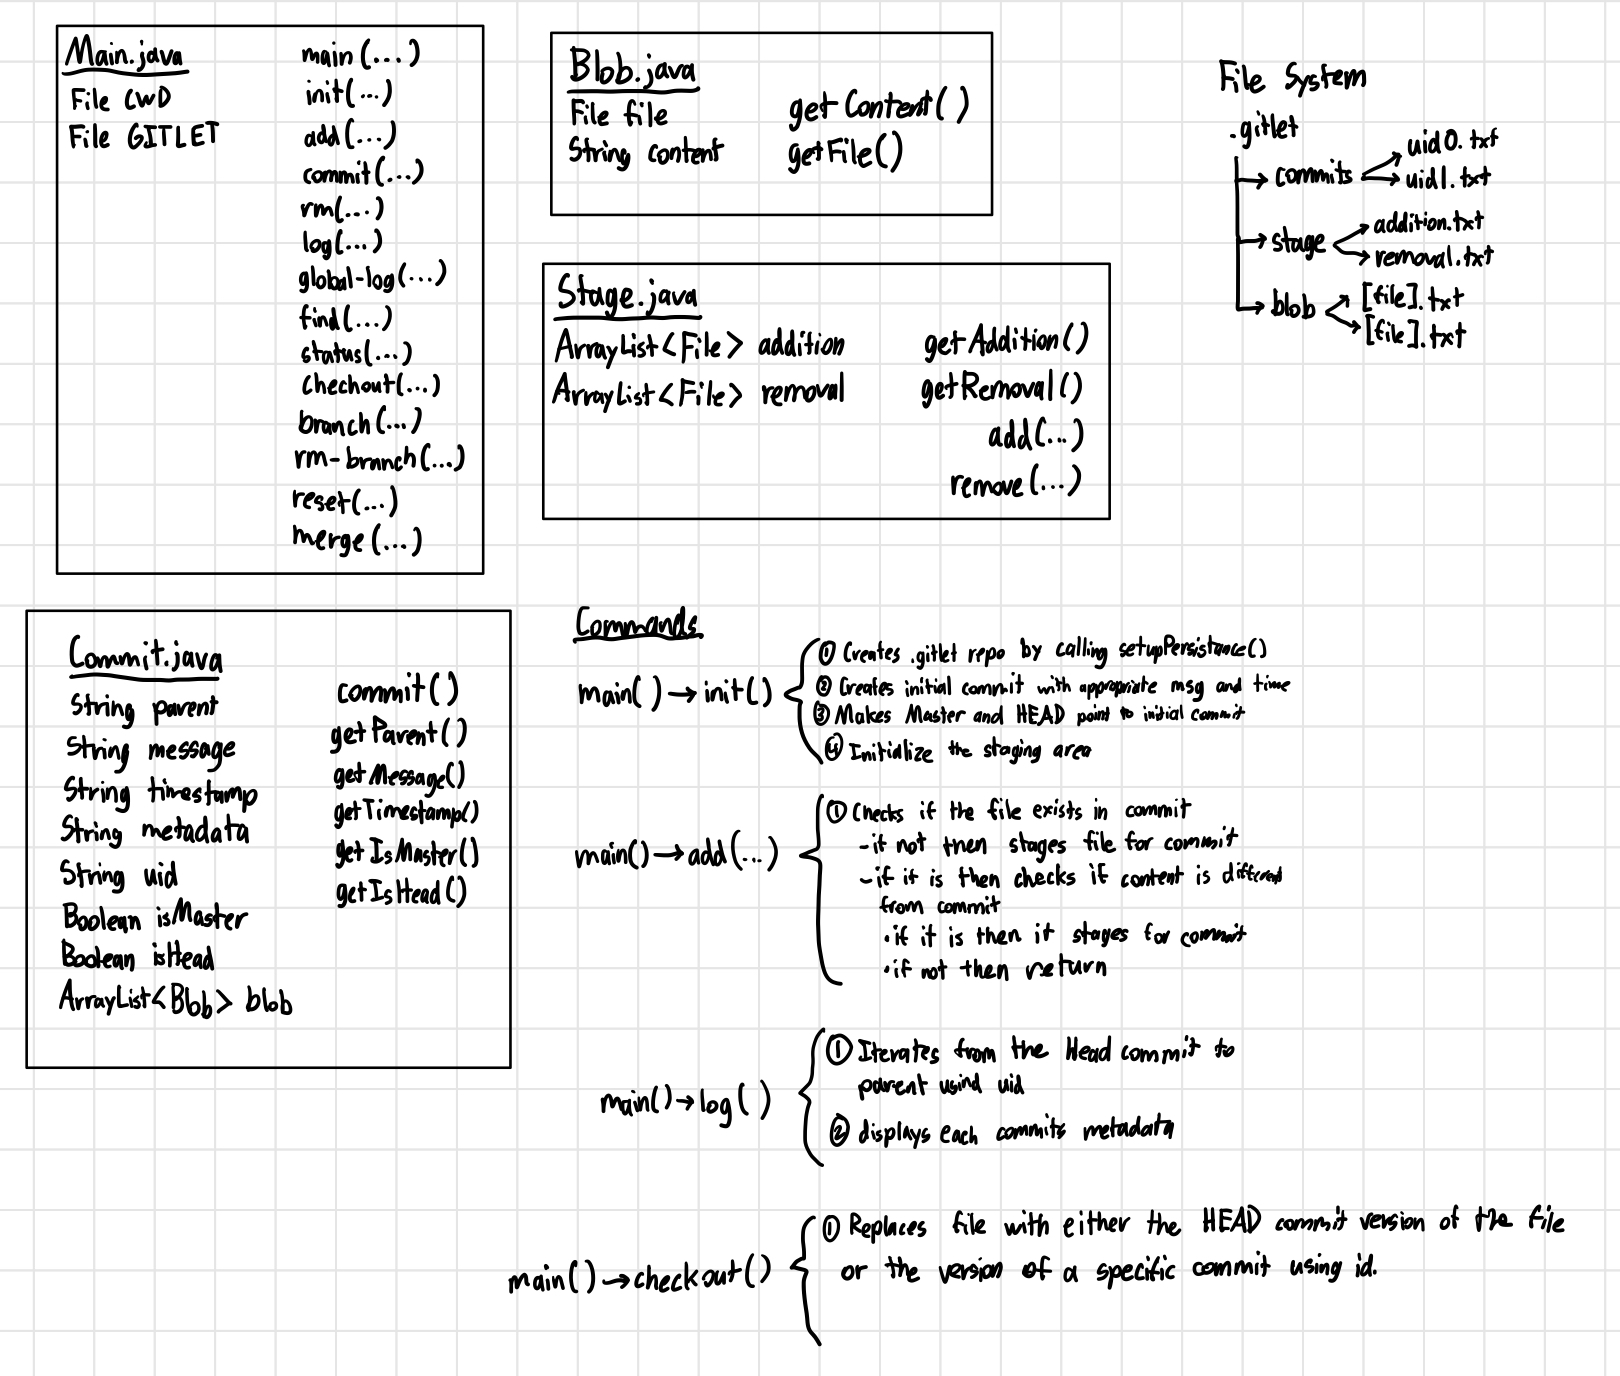 Main.java
File CWD
File GITLET
main(...)
init(...)
add(...)
commit(...)
rm(...)
log(...)
global-log(...)
find(...)
status(...)
chechout(...)
branch(...)
rm-branch(...)
reset(...)
merge(...)
Blob.java
File file
String content
getContent()
getFile()
Stage.java
ArrayList<File> addition
ArrayList<File> removal
getAddition()
getRemoval()
add(...)
remove(...)
File System
.gitlet
commits
uid0.txt
uid1.txt
stage
addition.txt
removal.txt
blob
[file].txt
[file].txt
Commit.java
String parent
String message
String timestamp
String metadata
String uid
Boolean isMaster
Boolean isHead
ArrayList<Blob> blob
commit()
getParent()
getMessage()
getTimestamp()
getIsMaster()
getIsHead()
Commands
main()→init()
① Creates .gitlet repo by calling setupPersistance()
② Creates initial commit with appropriate msg and time
③ Makes Master and HEAD point to initial commit
④ Initialize the staging area
main()→add(...)
① Checks if the file exists in commit
-if not then stages file for commit
-if it is then checks if content is different
from commit
·if it is then it stages for commit
·if not then return
main()→log()
① Iterates from the Head commit to
parent usind uid
② displays each commits metadata
main()→checkout()
① Replaces file with either the HEAD commit version of the file
or the version of a specific commit using id.